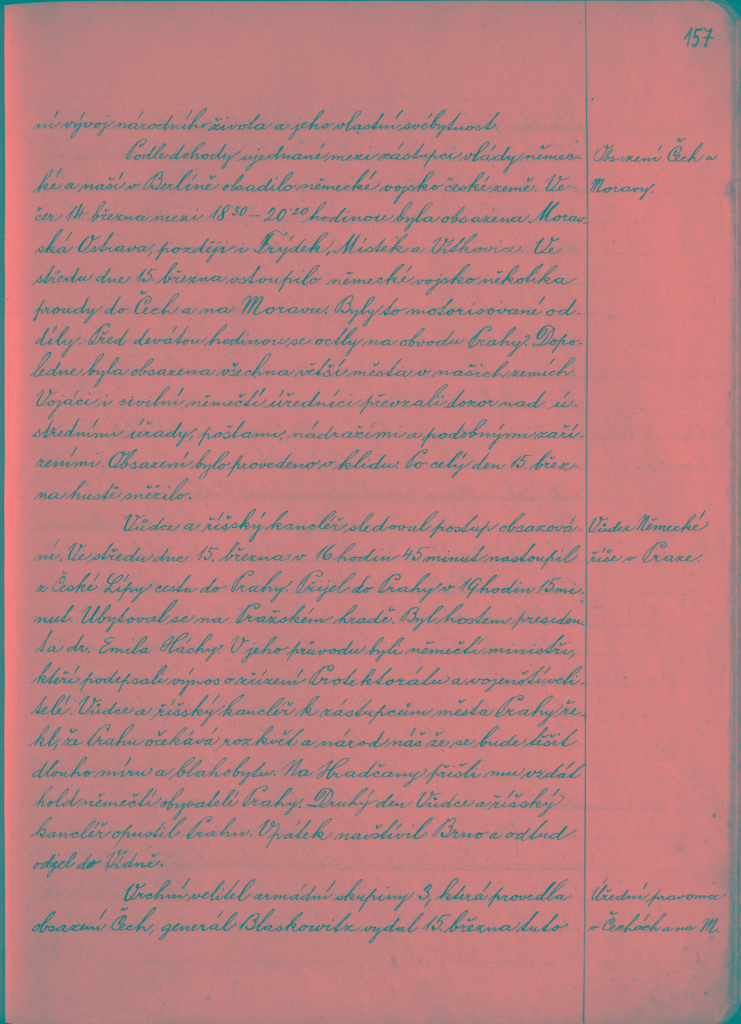 157
ní vývoj národního života a jeho vlastní svébytnost.
Podle dohody ujednané mezi zástupci vlády němec-
Obsazení Čech a
ké a naší v Berlíně obsadilo německé vojsko české země. Ve-
Moravy.
čer 14. března mezi 18³⁰ – 20²⁰ hodinou byla obsazena Morav-
ská Ostrava, později i Frýdek, Místek a Vítkovice. Ve
středu dne 15. března vstoupilo německé vojsko několika
proudy do Čech a na Moravu. Byly to motorisované od-
díly. Před devátou hodinou se octly na obvodu Prahy. Dopo-
ledne byla obsazena všechna větší města v našich zemích.
Vojáci i civilní němečtí úředníci převzali dozor nad ú-
středními úřady, poštami, nádražími a podobnými zaří-
zeními. Obsazení bylo provedeno v klidu. Po celý den 15. břez-
na hustě sněžilo.
Vůdce a říšský kancléř sledoval postup obsazová-
Vůdce Německé
ní. Ve středu dne 15. března v 16 hodin 45 minut nastoupil
říše v Praze.
z České Lípy cestu do Prahy. Přijel do Prahy v 19 hodin 15 mi-
nut. Ubytoval se na Pražském hradě. Byl hostem presiden-
ta dr. Emila Háchy. V jeho průvodu byli němečtí ministři,
kteří podepsali výnos o zřízení Protektorátu a vojenští veli-
telé. Vůdce a říšský kancléř k zástupcům města Prahy ře-
kl, že Prahu očekává rozkvět a národ náš že se bude těšit
dlouho míru a blahobytu. Na Hradčany přišli mu vzdát
hold němečtí obyvatelé Prahy. Druhý den Vůdce a říšský
kancléř opustil Prahu. V pátek navštívil Brno a odtud
odjel do Vídně.
Vrchní velitel armádní skupiny 3, která provedla
Úřední pravoma
obsazení Čech, generál Blaskowitz vydal 15. března tuto
v Čechách a na M.